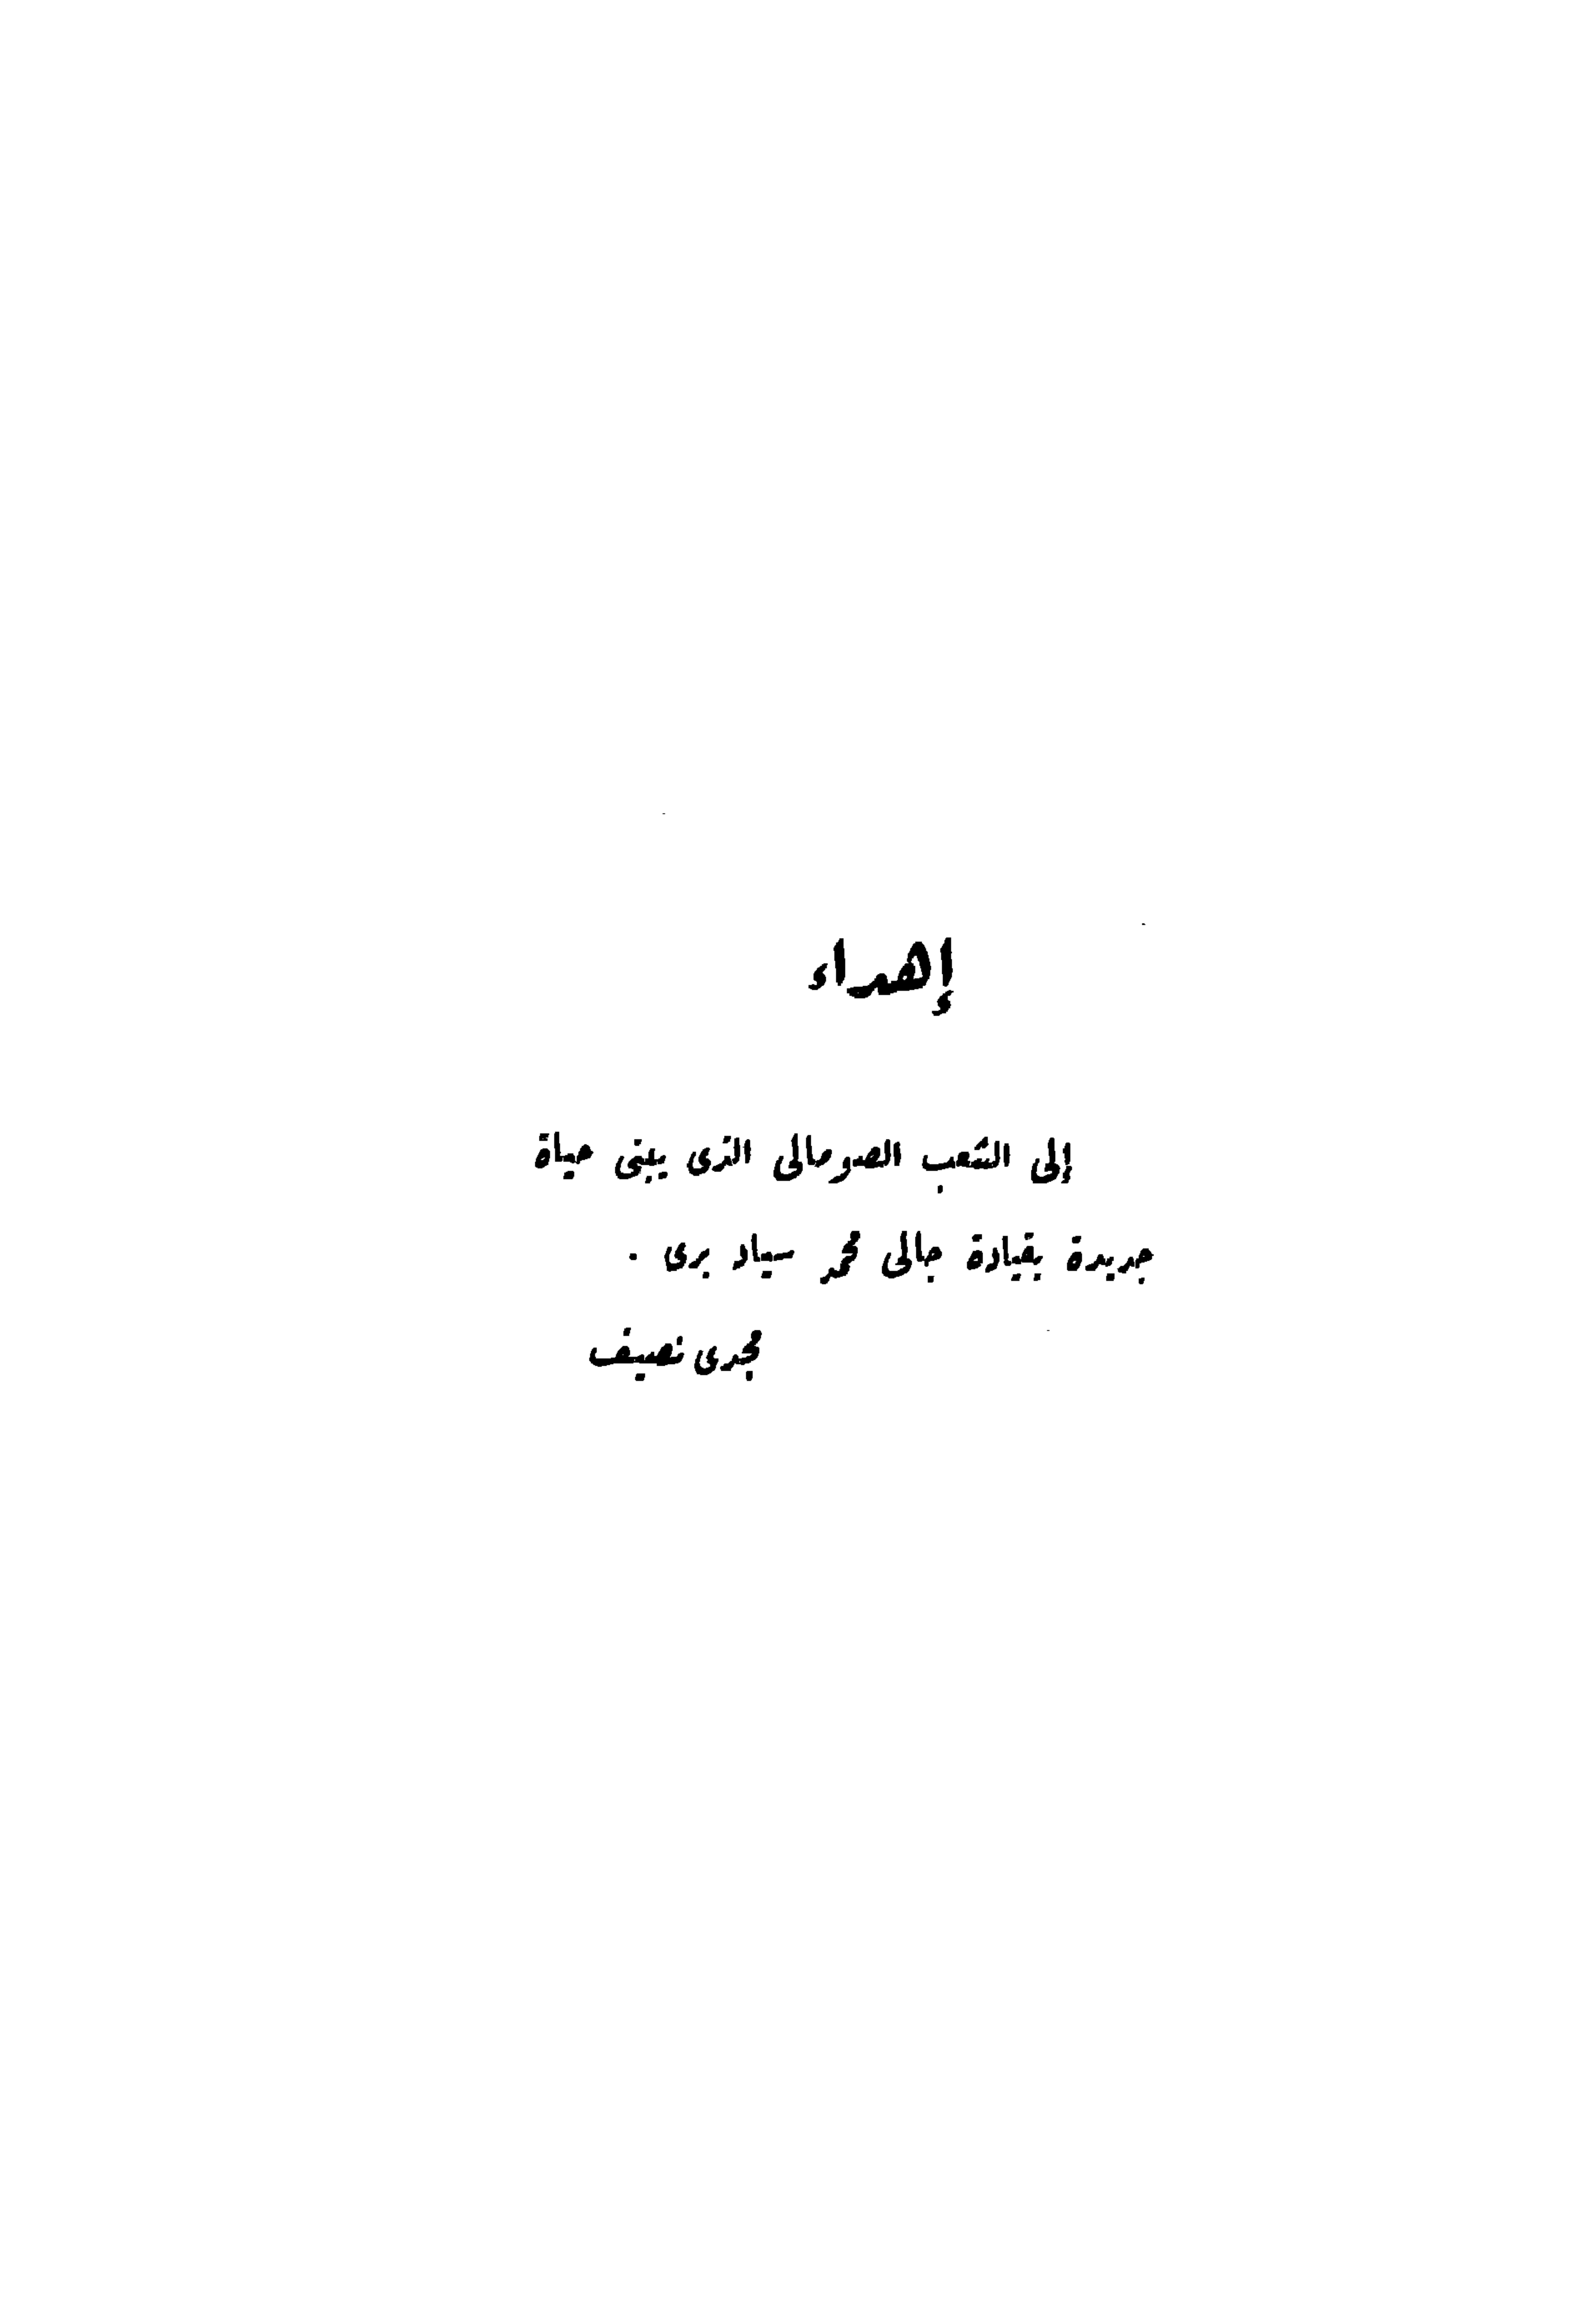 إهداء
إلى الشعب الصومالى الذى يبنى حياة
جديدة بقيادة جالى محمد سياد برى .
مجدى نصيف